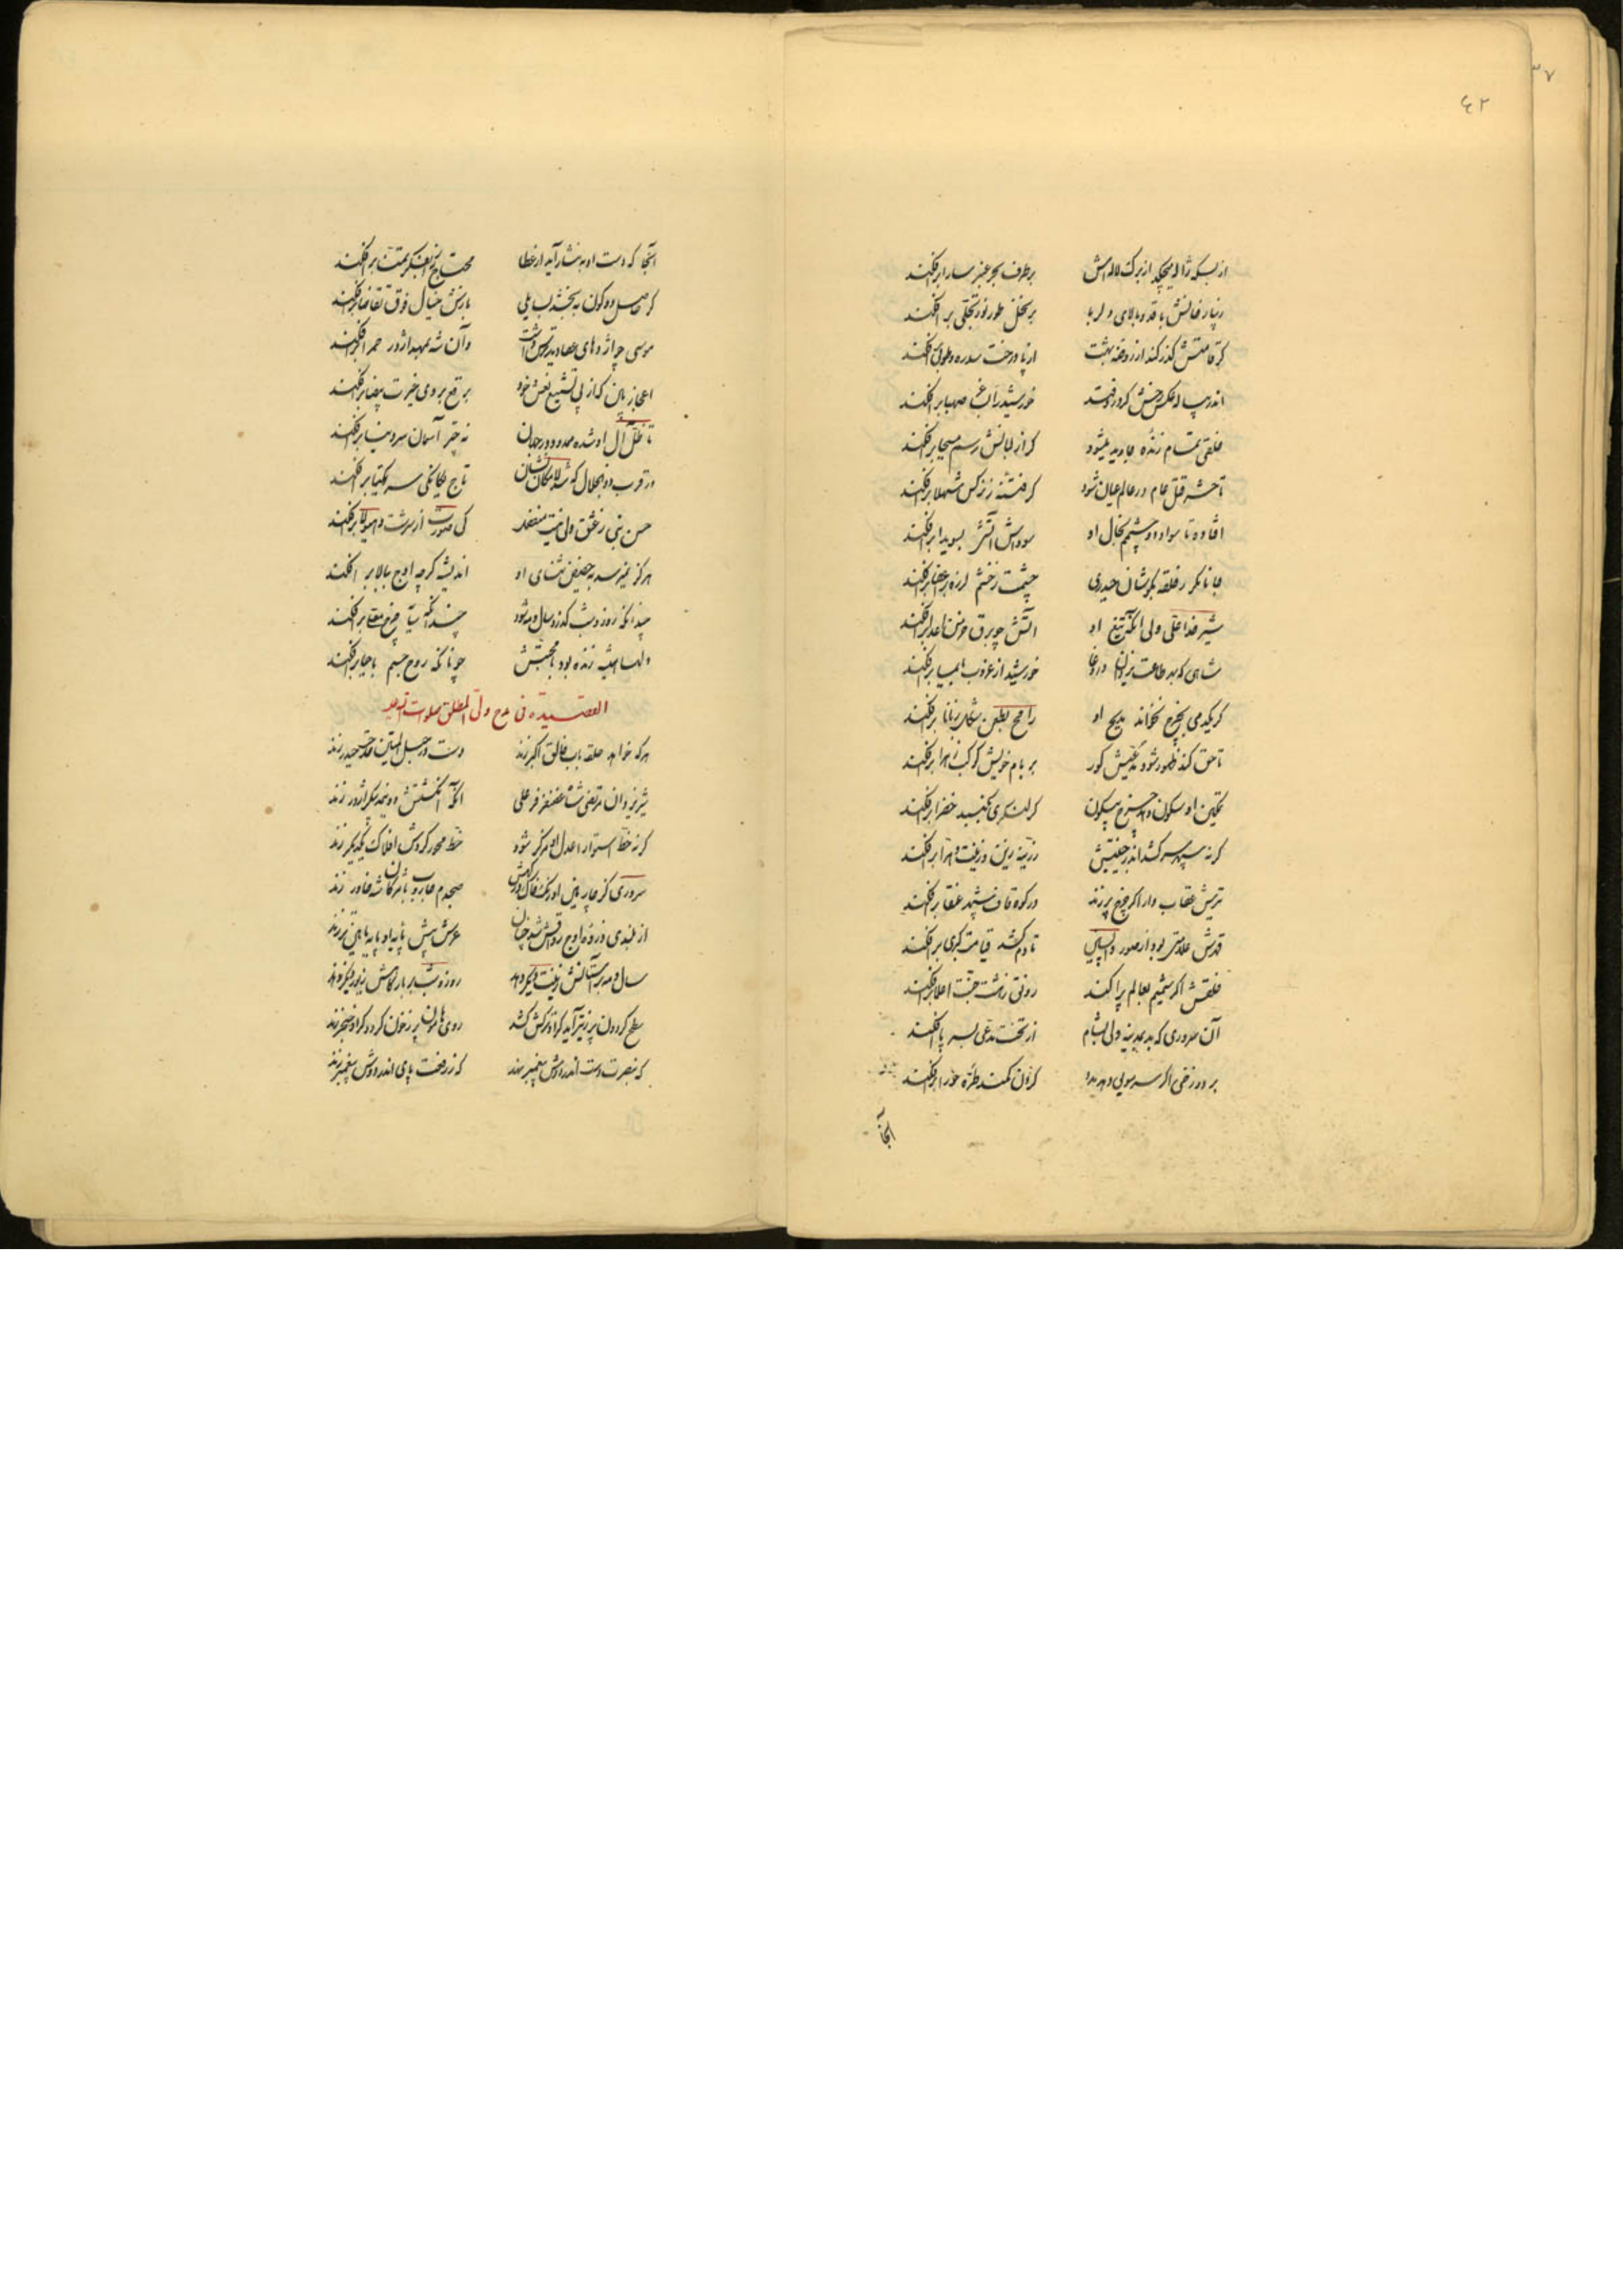 ٣٧
٤٢
از بسکه ژاله میچکد از برک لاله اش بر طرف بحر عنبر سارا برافکند
زنار فانش با قد و بالای دلربا بر نخل طور نور تجلی برافکند
کر قامتش کذر کند از روضه بهشت از پا درخت سدره و طوبی افکند
اندر پیاله عکس رخش کر فتد خورشید را صهبا برافکند
خلقی تمام زنده جاوید میشود کر از لبانش رسم مسیحا برافکند
تا حشر قتل عام در عالم عیان شود کر فتنه ز نرکس شهلا برافکند
افتاده تا سواد دو چشمم بخال او سوداش آتش بسویدا برافکند
جانا مکر ز حلقه بکوشان حیدری چشمت ز خشم لرزه بر اعضا برافکند
شیر خدا علی ولی آنکه تیغ او آتش چو برق خرمن اعدا برافکند
شاهی که بهر طاعت یزدان در وغا خورشید از غروب برافکند
کر یکدمی بچرخ نخواند مدیح او رامح برافکند
تا حق کند ظهور شود مدعیش کور بر بام خویش کوکب زهرا برافکند
تمکین او سکون دهد چرخ بیسکون کر لنکری بکنبد خضرا برافکند
کر نه سپهر سر کشد اندر جنیبتش زرینه زین برافکند
تیرش عقاب وار اکر چرخ پر زند در کوه قاف شهپر عنقا برافکند
قهرش علامتی بود از صور واپسین تا دم کشد قیامت کبری برافکند
خلقش اکر شمیم بعالم پراکند رونق ز هشت جنت اعلا برافکند
آن سروری که بد بمدینه ولی بشام از تخت مدعی بسر پا افکند
بر دوزخی اکر سر مویی دهد مدد کردن کمند طره حورا برافکند
آنجا
آنجا که دست او به نثار آید از عطا محتاج برافکند
کر حاصل دو کون به بخشد بسایلی بازش خیال فوق تقاضا برافکند
موسی چو اژدهای عصا دید ترس داشت وان شه بمهد اژدر حمرا برافکند
اعجاز بین که از پی تشییع نعش خود برقع بروی غیرت بیضا برافکند
تا ظل آل او شده ممدود در جهان نه چتر آسمان سر و مینا برافکند
در قرب ذوالجلال کوشه لامکان نشان تاج یکانکی سر یکتا برافکند
حسن نبی ز عشق ولی نیست منفصل کی صورت از سرشت هیولا برافکند
هرکز نمیرسد به حضیض ثنای او اندیشه کر چه اوج ببالا برافکند
چندانکه روز و شب کذرد سال و مه شود چندانکه سایه چرخ معلا برافکند
دلها همیشه زنده بود با محبتش چونانکه روح جسم باحیا برافکند
القصیدة فی مدح ولی المطلق صلوات الله علیه
هرکه خواهد حلقه باب خالق اکبر زند دست در حبل المتین مدحت حیدر زند
شیر یزدان مرتضی شاه غضنفر فر علی آنکه انکشتش دو نیمه پیکر اژدر زند
کر نه خط استوار اعدل او مرکز شود خط محور کردش افلاک یکدیکر زند
سروری کز چار بالین اورنک خاک درکهش صبحدم جاروب با مژکان شه خاور زند
از بلندی ذروه اوج رواقش شد چنان عرش پیش پایه او پایه پایین تر زند
سال و مه بر آستانش زینت دیکر دهد روز و شب بر بارکاهش زیور دیکر زند
سطح کردون پر ز تیر آید کر او ترکش کشد روی هامون پر ز خون کردد کر او خنجر زند
که بنصرت دست اندر دوش پیغمبر نهد که ز رفعت پای اندر دوش پیغمبر زند